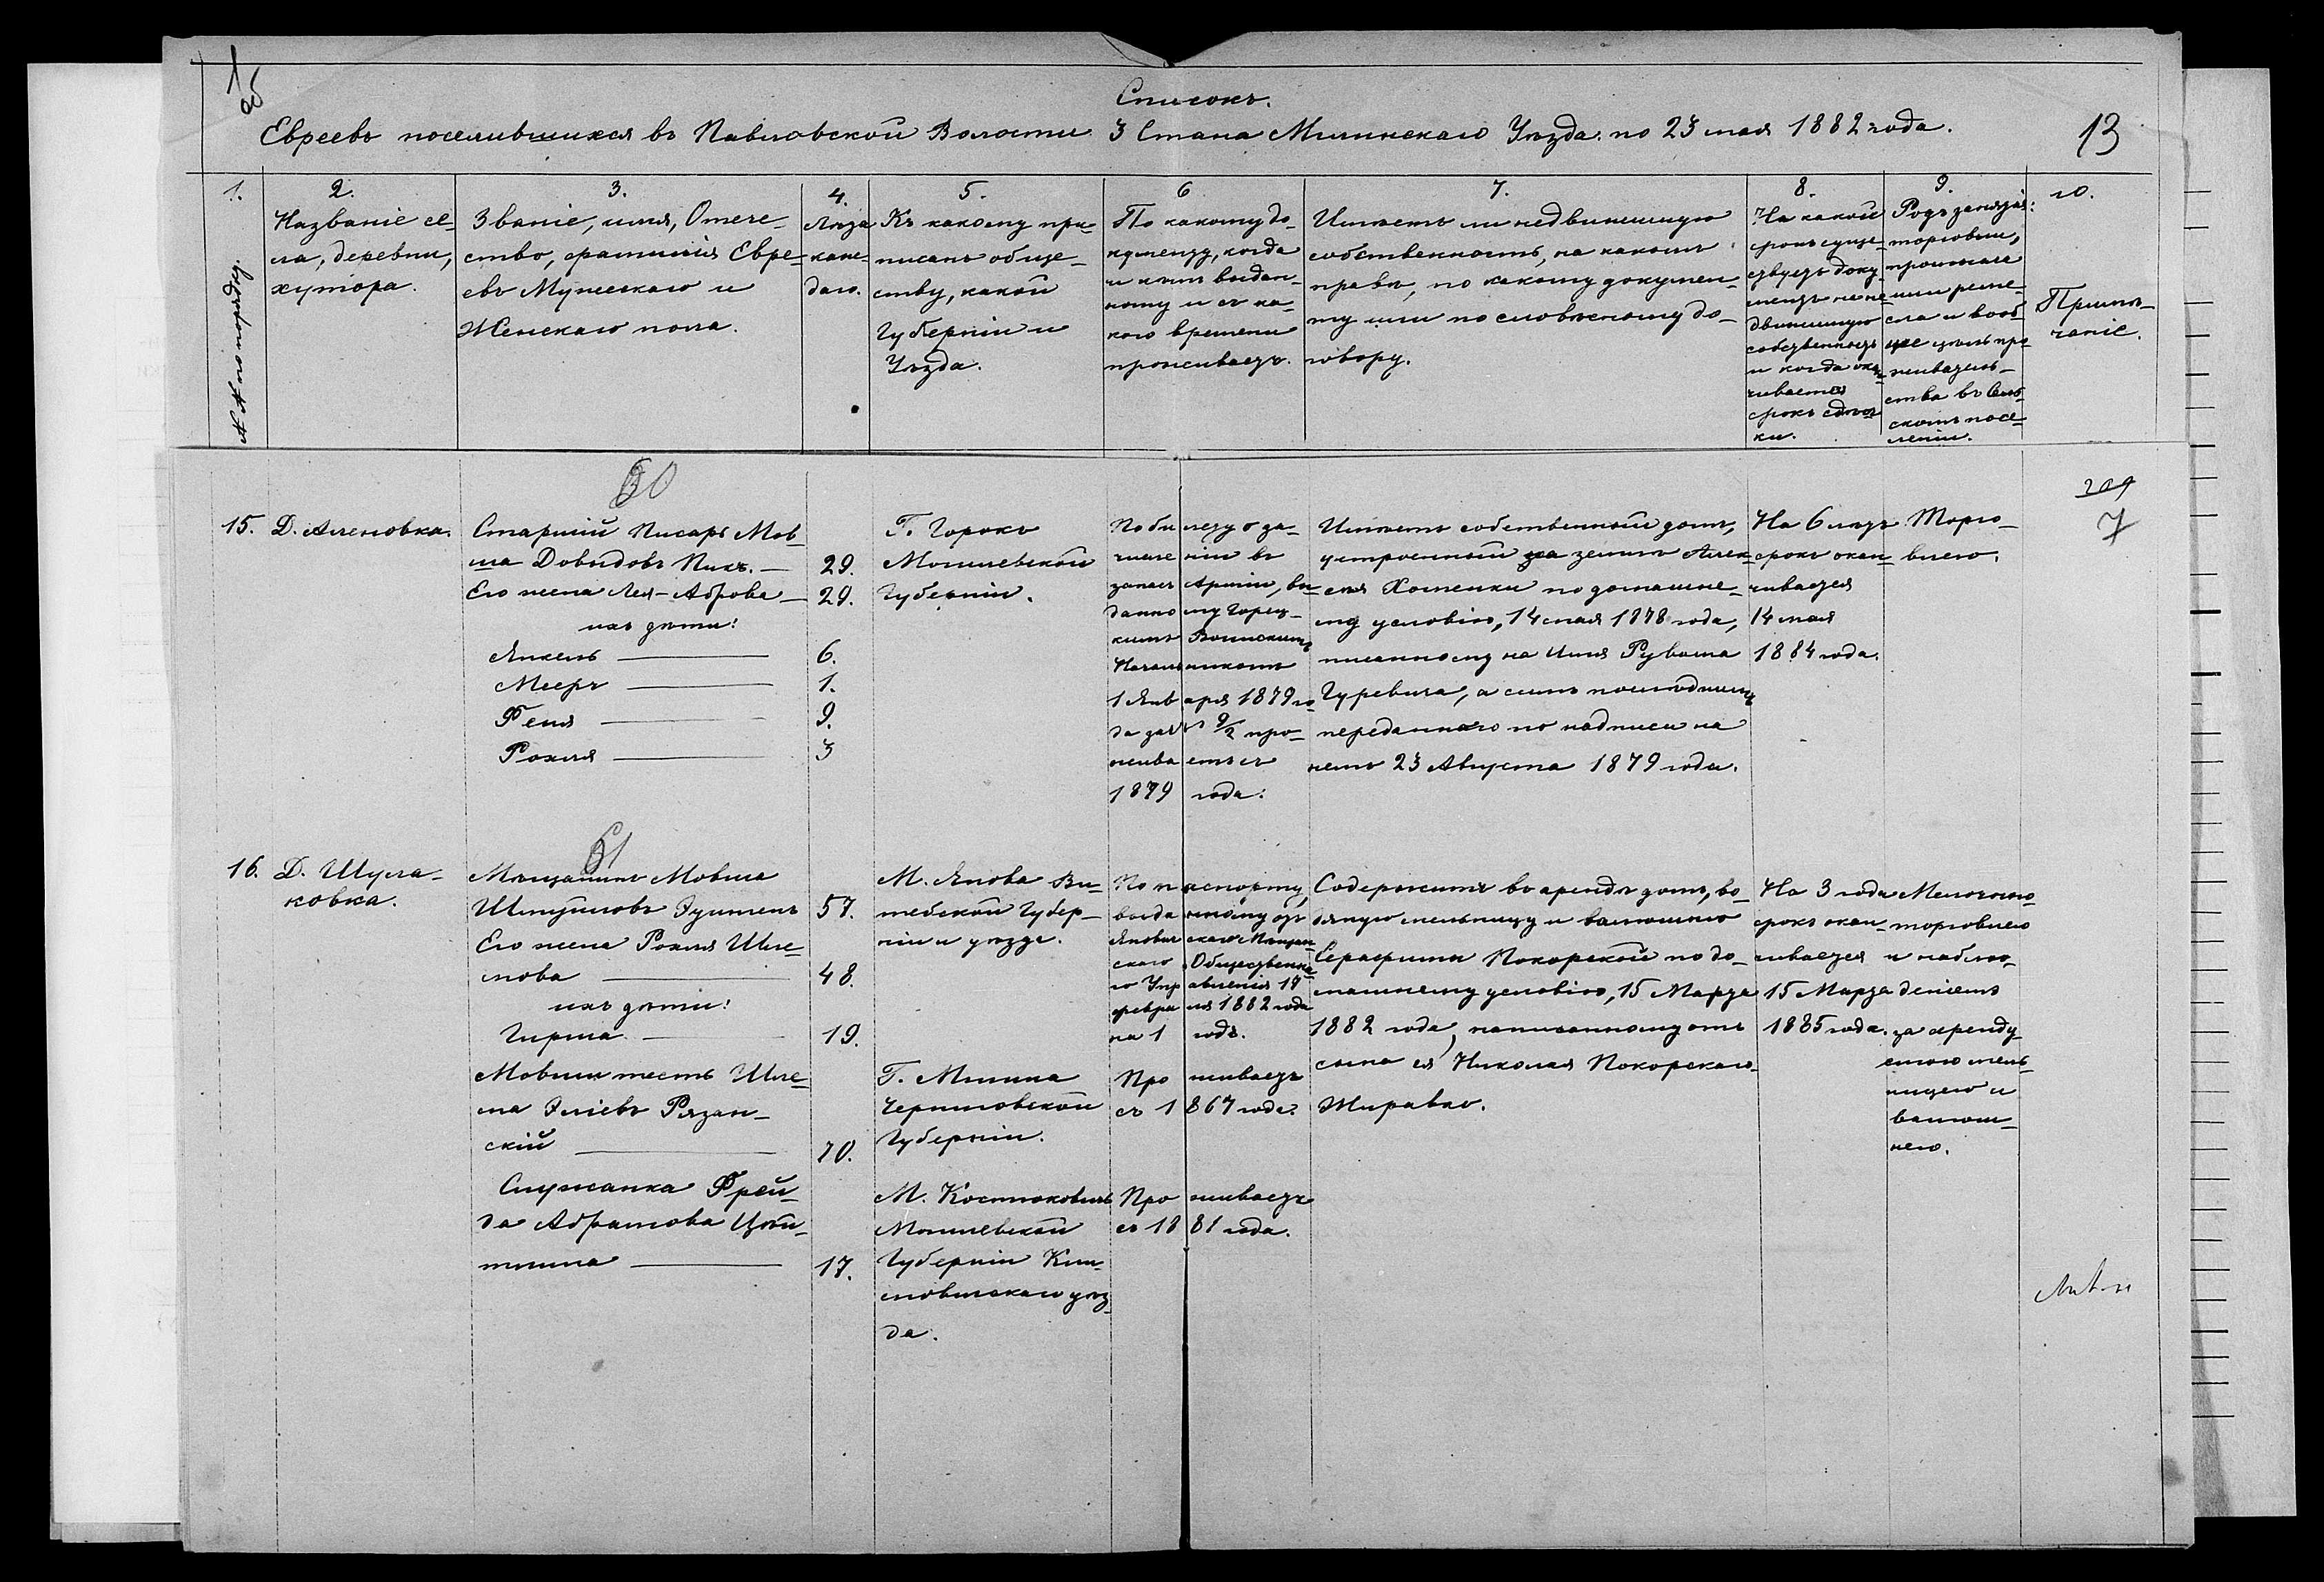 Списокъ.
Евреевъ поселившихся въ Павловской Волости 3 Стана Мглинскаго Уѣзда по 23 мая 1882 года.
13
1.
№№ по порядку.
2.
Названіе се-
ла, деревни,
хутора.
3.
Званіе, имя, Отече-
ство, фамилія Евре-
евъ Мужескаго и
Женскаго пола.
4.
Лѣта
кажд-
даго.
5.
Къ какому при-
писанъ обще-
ству, какой
Губерніи и
Уѣзда.
6
По какому до-
кументу, когда
и кѣмъ выдан-
ному и съ ка-
кого времени
проживаетъ.
7.
Имѣетъ ли недвижимую
собственность, на какомъ
правѣ, по какому докумен-
ту или по словесному до-
говору.
8.
На какой
срокъ суще-
ствуетъ доку-
ментъ на не-
движимую
собственность
и когда окан-
чивается
срокъ сдѣл-
ки.
9.
Родъ занятія:
торговли,
промысел
или реме-
сла и вооб-
ще цѣль про-
живатель-
ства въ Сель-
скомъ посе-
леніи.
10.
Примѣ-
чаніе.
60
15.
Д. Аленовка.
Старшій Писарь Мов-
ша Довидовъ Пикъ. —
29.
Его жена Лея-Аброва —
29.
ихъ дѣти:
Янкель —
6.
Мееръ —
1.
Феня —
9.
Рохля —
3
Г. Горокъ
Могилевской
Губерніи.
По билету о за-
численіи въ
запасъ Арміи, вы-
данному Горец-
кимъ Воинскимъ
Начальникомъ
1 Января 1879 го-
да за № 9/2 про-
живаетъ съ
1879 года.
Имѣетъ собственный домъ,
устроенный на землѣ Алек-
сѣя Хоменки по домашне-
му условію, 14 мая 1878 года,
писанному на имя Рувима
Гуревича, а симъ послѣднимъ
переданнаго по надписи на
немъ 23 Августа 1879 года.
На 6 лѣтъ
срокъ окан-
чивается
14 мая
1884 года.
Торго-
влею.
209
7
61
16.
Д. Шула-
ковка.
Мѣщанинъ Мовша
Шмуйловъ Эутменъ
57.
Его жена Рохля Шле-
мова —
48.
ихъ дѣти:
Гирша —
19.
Мовши тесть Шле-
ма Эліевъ Рязан-
скій —
70.
Служанка Фрей-
да Абрамова Цей-
тлина —
17.
М. Янова Ви-
тебской Губер-
ніи и уѣзда.
Г. Мглина
Черниговской
Губерніи.
М. Костюковичъ
Могилевской
Губерніи Кли-
мовичскаго уѣз-
да.
По паспорту,
выданному отъ
Яновичскаго Мѣщан-
скаго Общественна-
го Управленія 18
февраля 1882 года
на 1 годъ.
Проживаетъ
съ 1867 года.
Проживаетъ
съ 1881 года.
Содержитъ въ арендѣ домъ, во-
дяную мельницу и валюшню
Серафимы Покорской по до-
машнему условію, 15 Марта
1882 года, написанному отъ
сына ея Николая Покорскаго-
Журавко.
На 3 года
срокъ окан-
чивается
15 Марта
1885 года.
Мелочною
торговлею
и наблю-
деніемъ
за аренду-
емою мель-
ницею и
валюш-
нею.